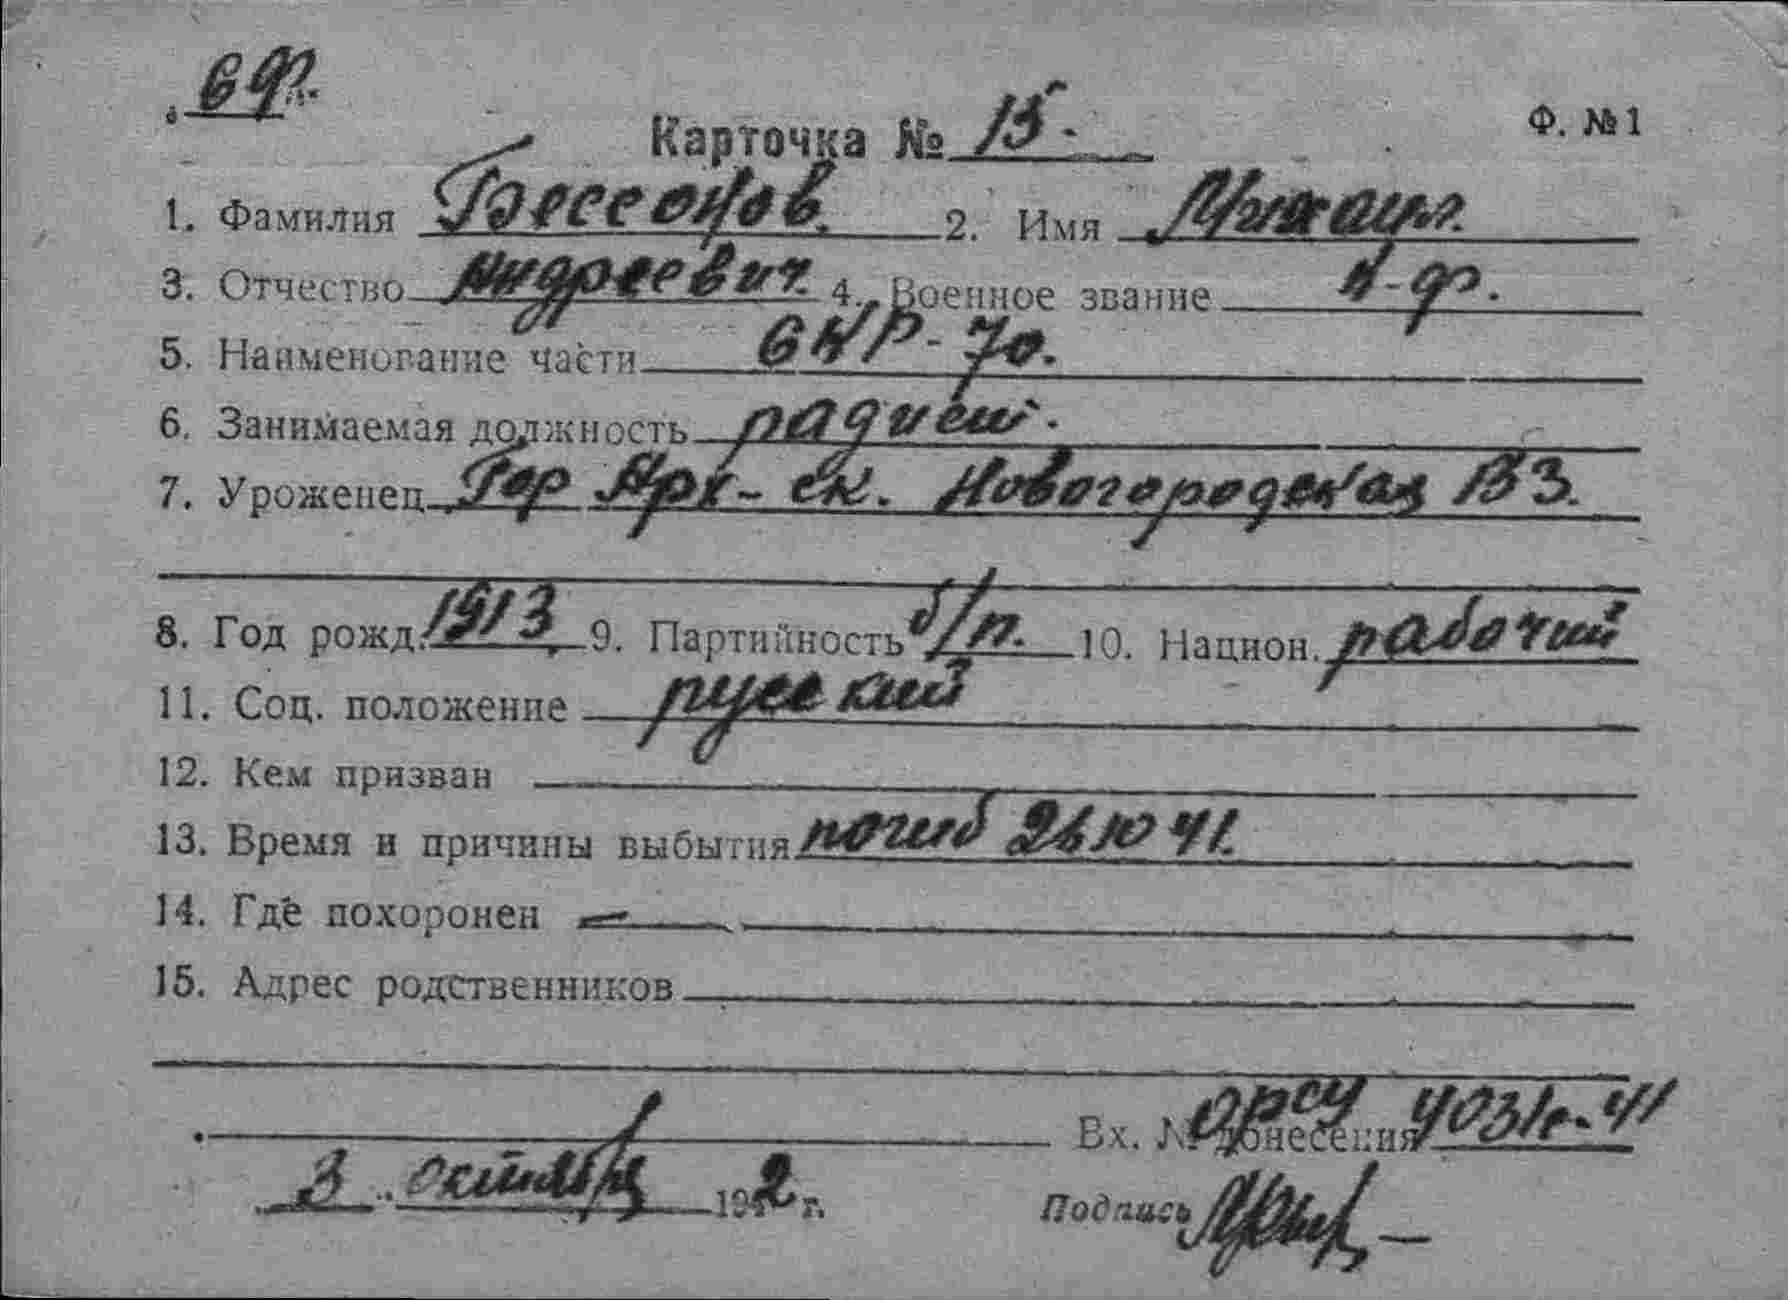 6 ф.
Карточка № 15.
Ф. №1
1. Фамилия 2. Имя Михаил
3. Отчество Андреевич 4. Военное звание к-ф.
5. Наименование части 70.
6. Занимаемая должность радист.
7. Уроженец Гор Арх-ск. Новогородская 133.
8. Год рожд. 1913 9. Партийность б/п. 10. Национ. рабочий
11. Соц. положение русский
12. Кем призван
13. Время и причины выбытия погиб 10 41.
14. Где похоронен —
15. Адрес родственников
Вх. № донесения
3 октября 1942 г.
Подпись